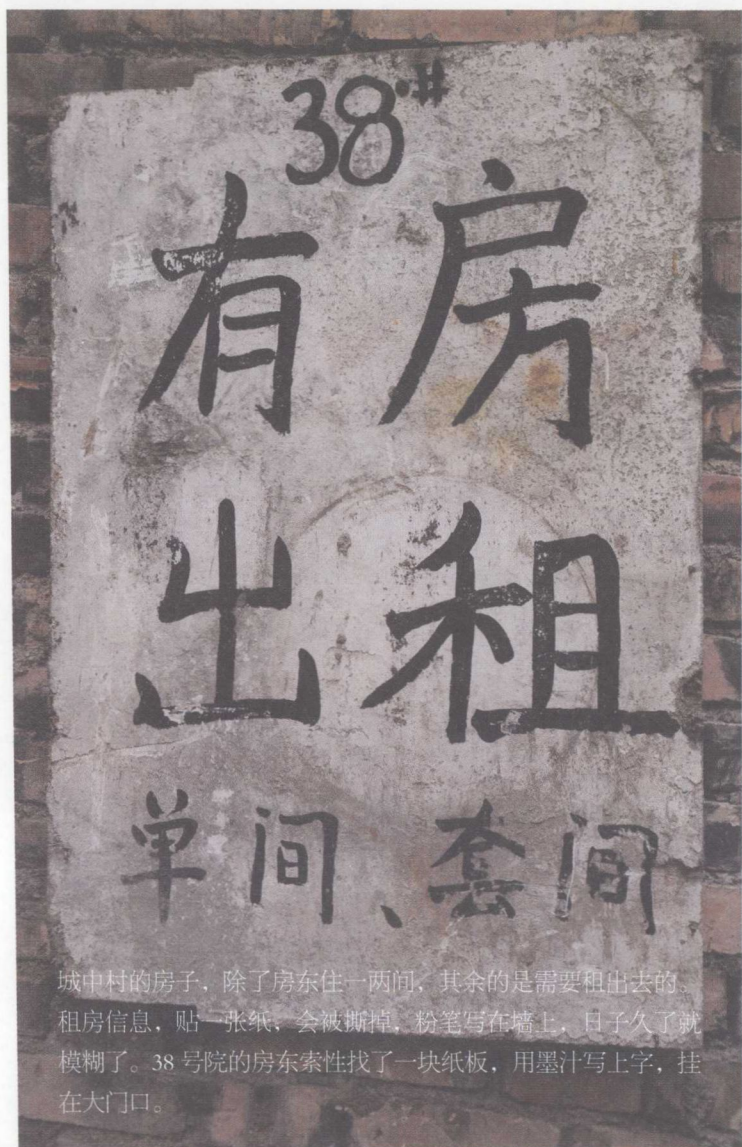 38#
有房
出租
单间、套间
城中村的房子，除了房东住一两间，其余的是需要租出去的。
租房信息，贴一张纸，会被撕掉，粉笔写在墙上，日子久了就
模糊了。38 号院的房东索性找了一块纸板，用墨汁写上字，挂
在大门口。